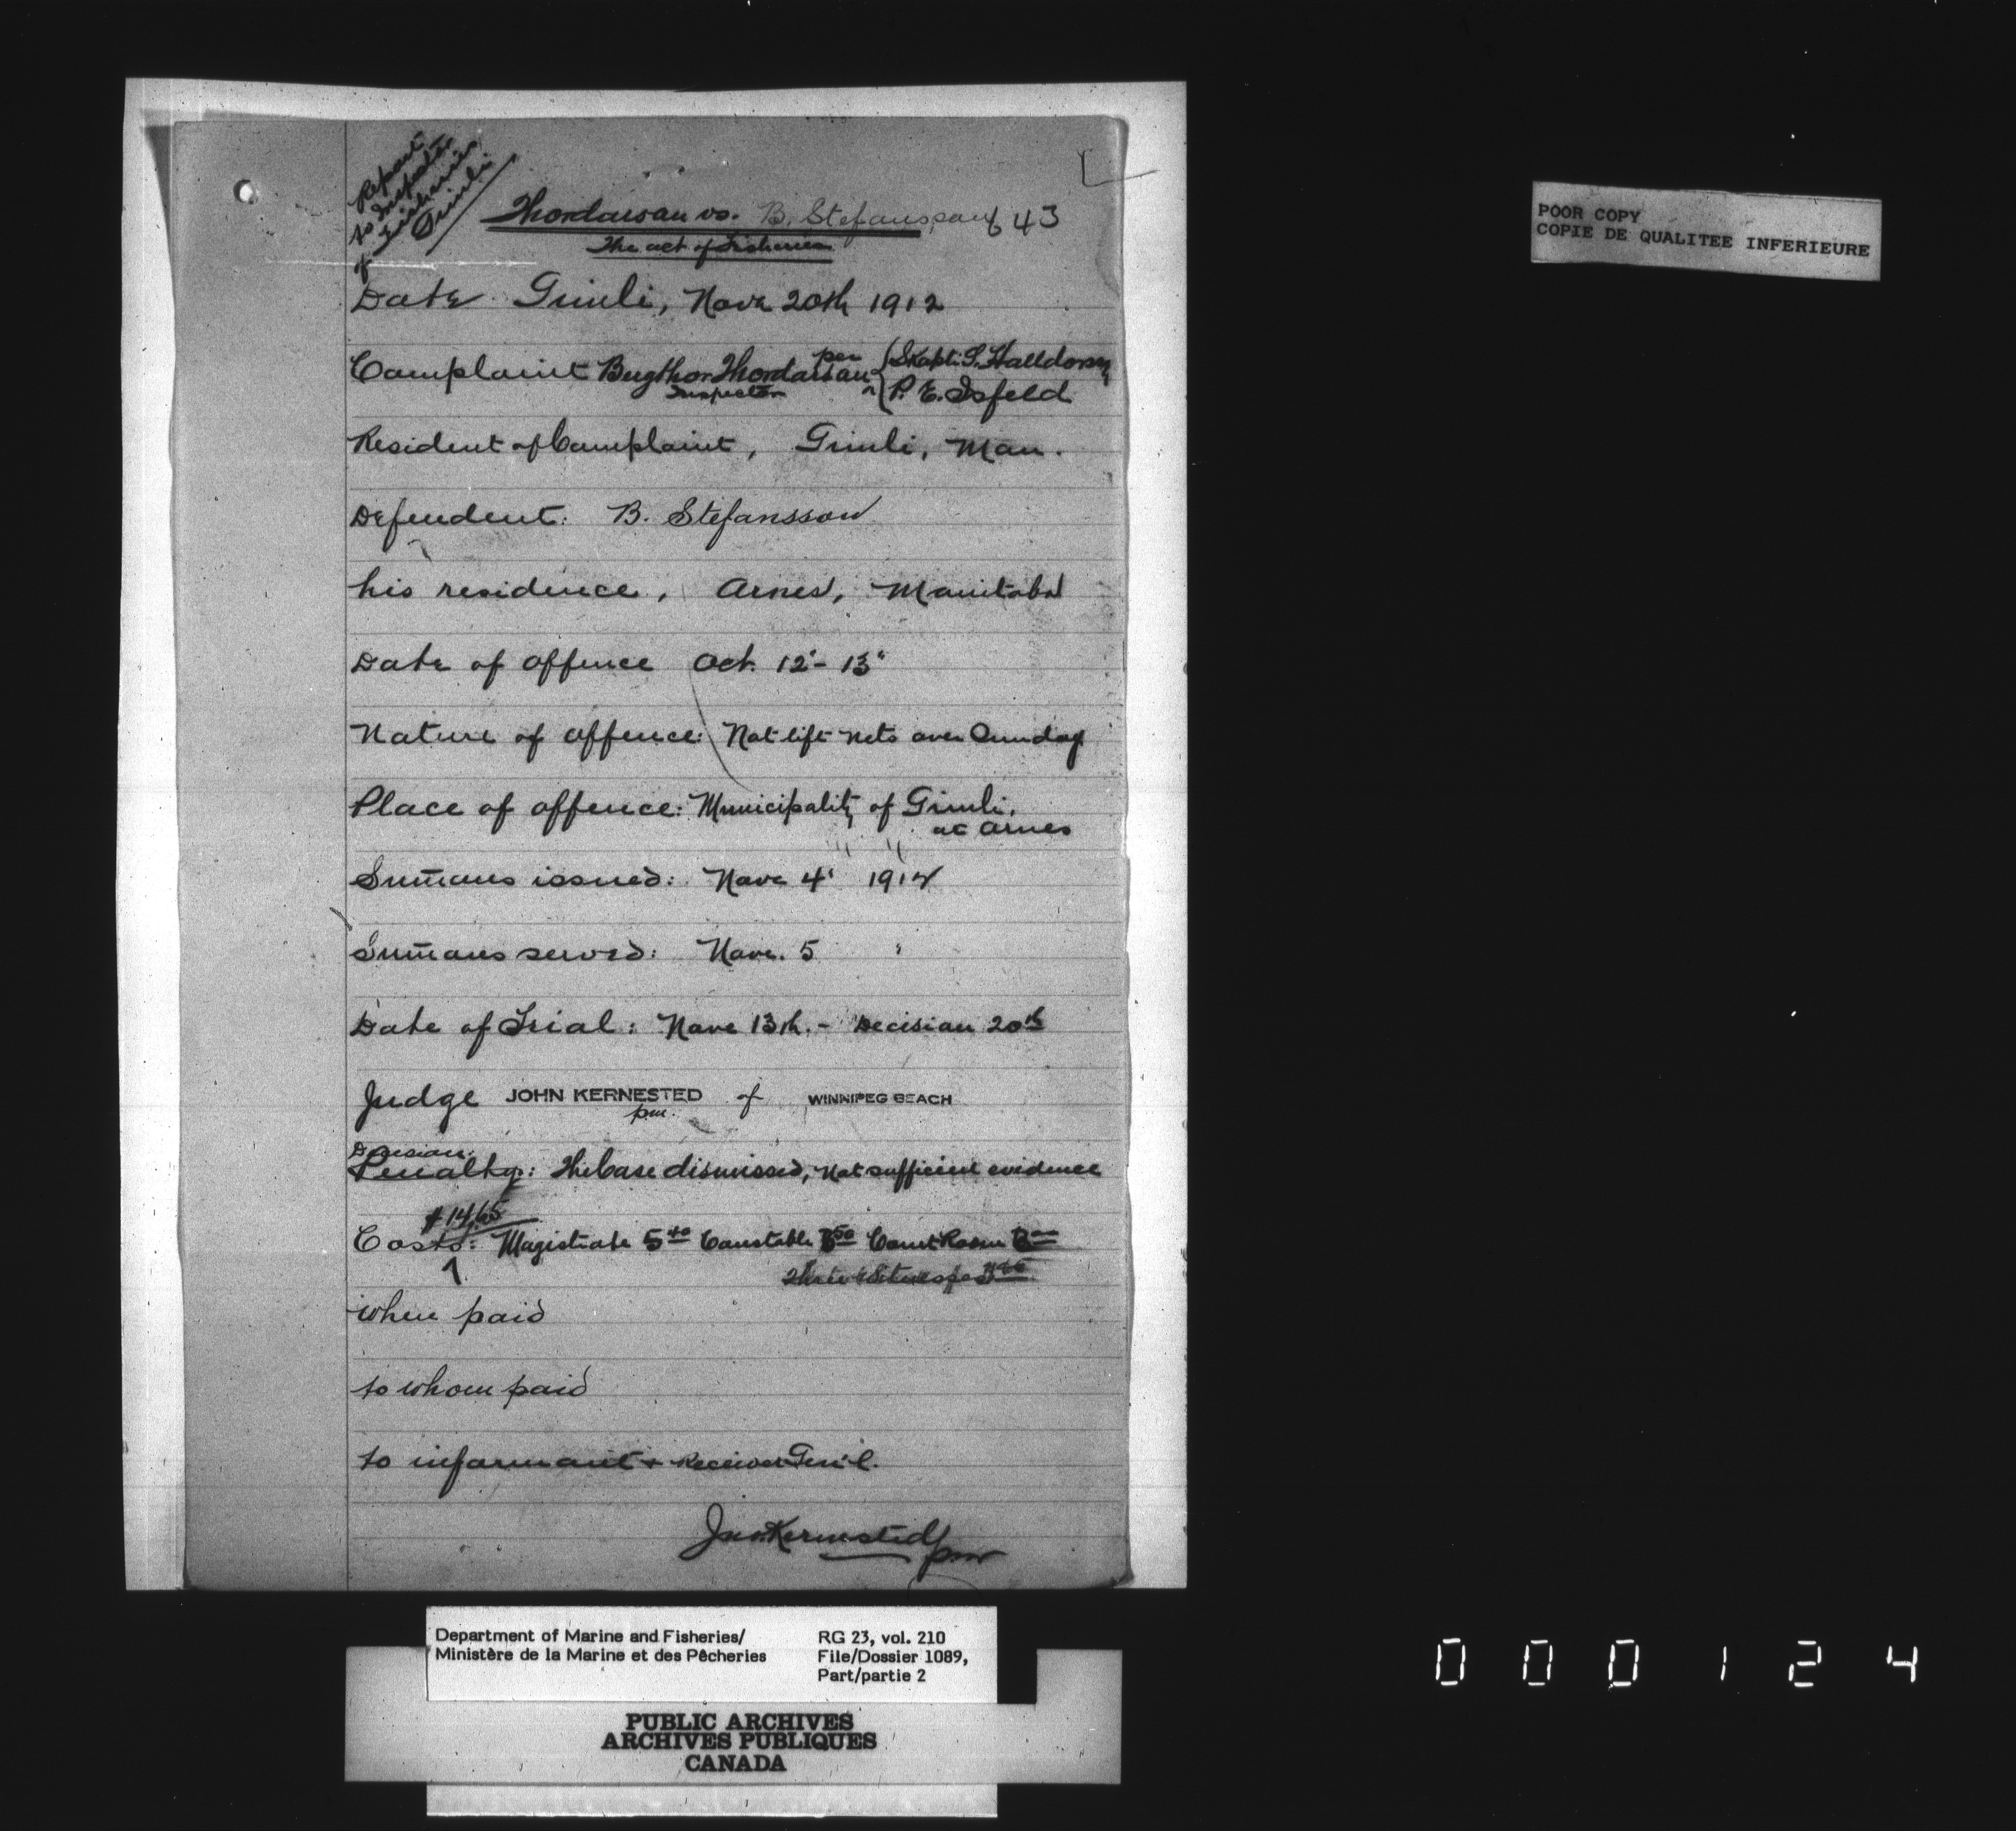 Report
to Inspector
of Fisheries
Gimli
Thordarson vs. B. Stefansson 643
The act of Fisheries
Date Gimli, Nove 20th 1912
Complaint Bergthor Thordarson per { Skapti S. Halldorson
Inspector { P. E. Isfeld
Resident of Complaint, Gimli, Man.
Defendent: B. Stefansson
his residence, Arnes, Manitoba
Date of offence Oct. 12" - 13"
Nature of offence: Not lift nets over Sunday
Place of offence: Municipality of Gimli,
at Arnes
Sum̄ons issued: Nove 4' 1912
Sum̄ons served: Nove. 5 "
Date of Trial: Nove 13th. - Decision 20th
Judge JOHN KERNESTED of WINNIPEG BEACH
pm.
Decision:
Penalty: The Case dismissed, Not sufficient evidence
$14.65
Costs: Magistrate 5 40 Constable 50 Court Room
when paid
to whom paid
to informant & Receiver Gen'l.
Jno. Kernested pm
POOR COPY
COPIE DE QUALITEE INFERIEURE
Department of Marine and Fisheries/
Ministère de la Marine et des Pêcheries
RG 23, vol. 210
File/Dossier 1089,
Part/partie 2
PUBLIC ARCHIVES
ARCHIVES PUBLIQUES
CANADA
000124